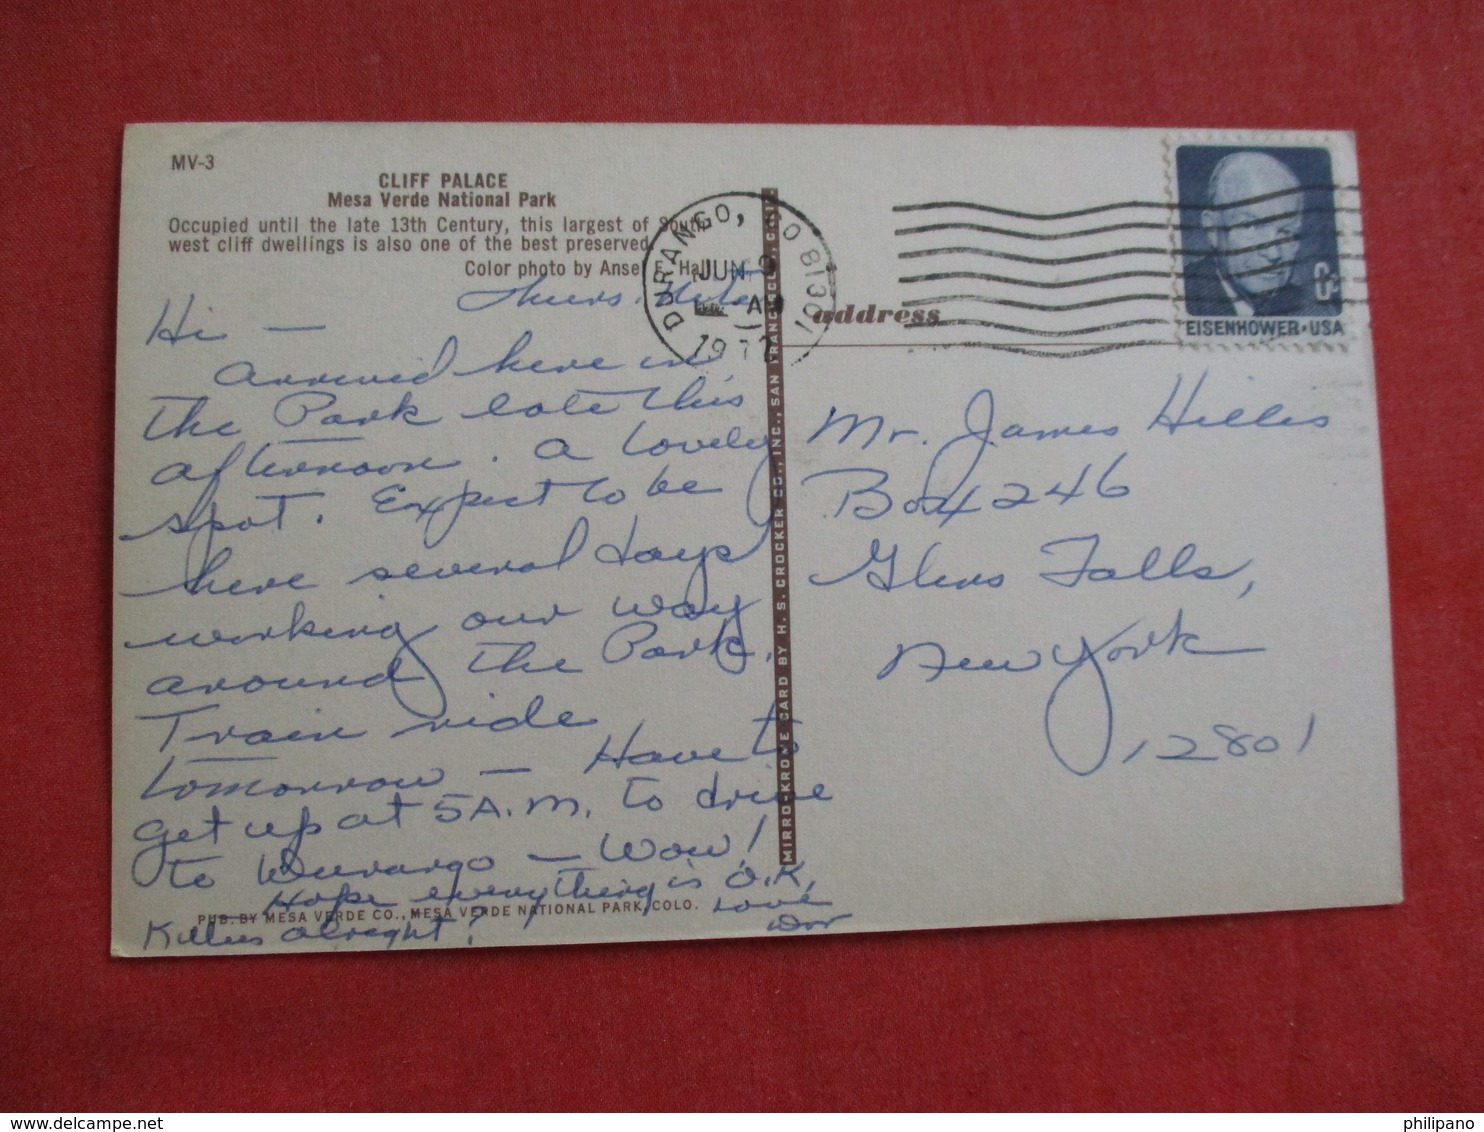 MV-3
CLIFF PALACE
Mesa Verde National Park
Occupied until the late 13th Century, this largest of South-
west cliff dwellings is also one of the best preserved.
Color photo by Ansel F. Hall
DURANGO, CO 81301
JUN 9
1972
EISENHOWER·USA
address
MIRRO-KROME CARD BY H. S. CROCKER CO., INC., SAN FRANCISCO, CALIF.
Thurs. Nite
Hi —
Arrived here in
the Park late this
afternoon. A lovely
spot. Expect to be
here several days
working our way
around the Park.
Train ride
tomorrow — Have to
get up at 5 A.M. to drive
to Durango — Wow!
Hope everything is O.K.
Kitties alright? Love
Dor
PUB. BY MESA VERDE CO., MESA VERDE NATIONAL PARK, COLO.
Mr. James Hilles
Box 4246
Glens Falls,
New York
12801
philipano